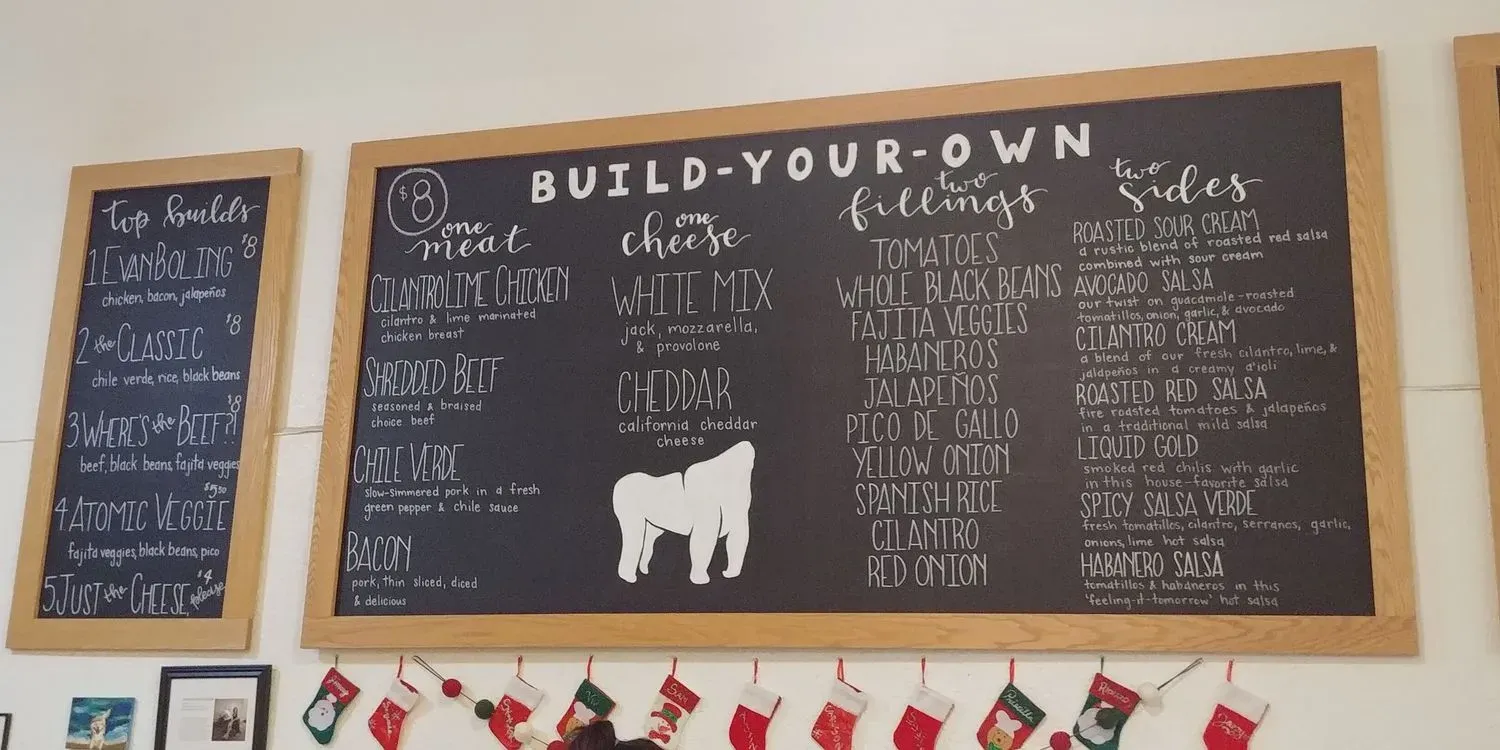 top builds
1 EVANBOLING $8
chicken, bacon, jalapeños
2 the CLASSIC $8
chile verde, rice, black beans
3 WHERE'S the BEEF?! $8
beef, black beans, fajita veggies
4 ATOMIC VEGGIE
fajita veggies, black beans, pico
5 JUST the CHEESE, please $4
BUILD-YOUR-OWN
$8
one
meat
CILANTRO LIME CHICKEN
cilantro & lime marinated
chicken breast
SHREDDED BEEF
seasoned & braised
choice beef
CHILE VERDE
slow-simmered pork in a fresh
green pepper & chile sauce
BACON
pork, thin sliced, diced
& delicious
one
cheese
WHITE MIX
jack, mozzarella,
& provolone
CHEDDAR
california cheddar
cheese
two
fillings
TOMATOES
WHOLE BLACK BEANS
FAJITA VEGGIES
HABANEROS
JALAPEÑOS
PICO DE GALLO
YELLOW ONION
SPANISH RICE
CILANTRO
RED ONION
two
sides
ROASTED SOUR CREAM
a rustic blend of roasted red salsa
combined with sour cream
AVOCADO SALSA
our twist on guacamole-roasted
tomatillos, onion, garlic, & avocado
CILANTRO CREAM
a blend of our fresh cilantro, lime, &
jalapeños in a creamy a'ioli
ROASTED RED SALSA
fire roasted tomatoes & jalapeños
in a traditional mild salsa
LIQUID GOLD
smoked red chilis with garlic
in this house-favorite salsa
SPICY SALSA VERDE
fresh tomatillos, cilantro, serranos, garlic,
onions, lime hot salsa
HABANERO SALSA
tomatillos & habaneros in this
'feeling-it-tomorrow' hot salsa
SAM
Priscilla